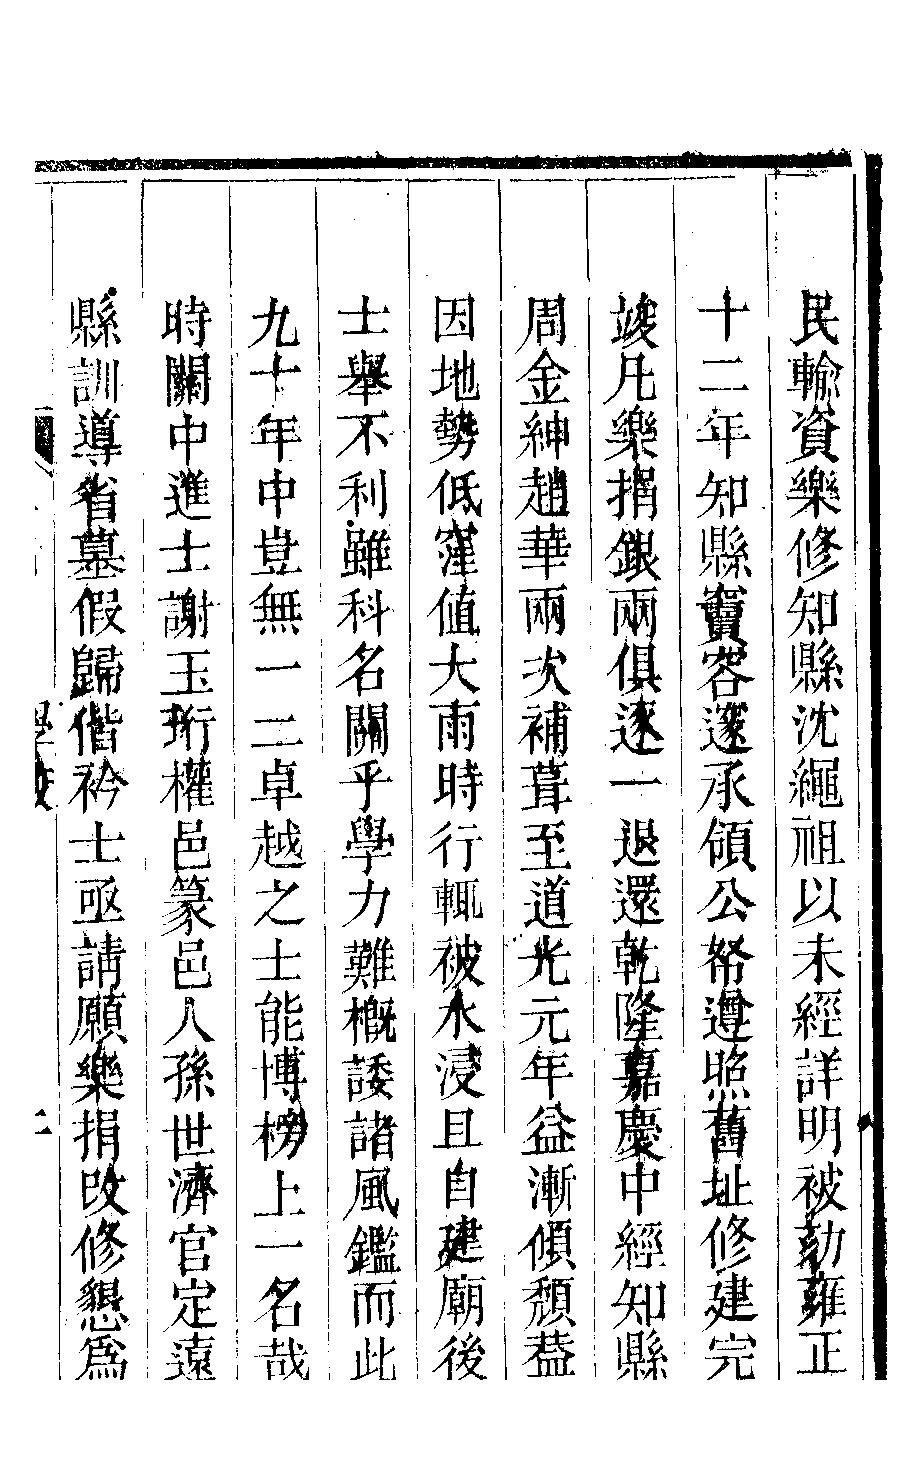 民輸資樂修知縣沈繩祖以未經詳明被劾雍正
十二年知縣竇容邃承領公帑遵照舊址修建完
竣凡樂捐銀兩俱逐一退還乾隆嘉慶中經知縣
周金紳趙華兩次補葺至道光元年益漸傾頹葢
因地勢低窪值大雨時行輒被水浸且自建廟後
士舉不利雖科名關乎學力難概諉諸風鑑而此
九十年中豈無一二卓越之士能博榜上一名哉
時關中進士謝玉珩權邑篆邑人孫世濟官定遠
縣訓導省墓假歸偕衿士亟請願樂捐改修懇爲
學校
二